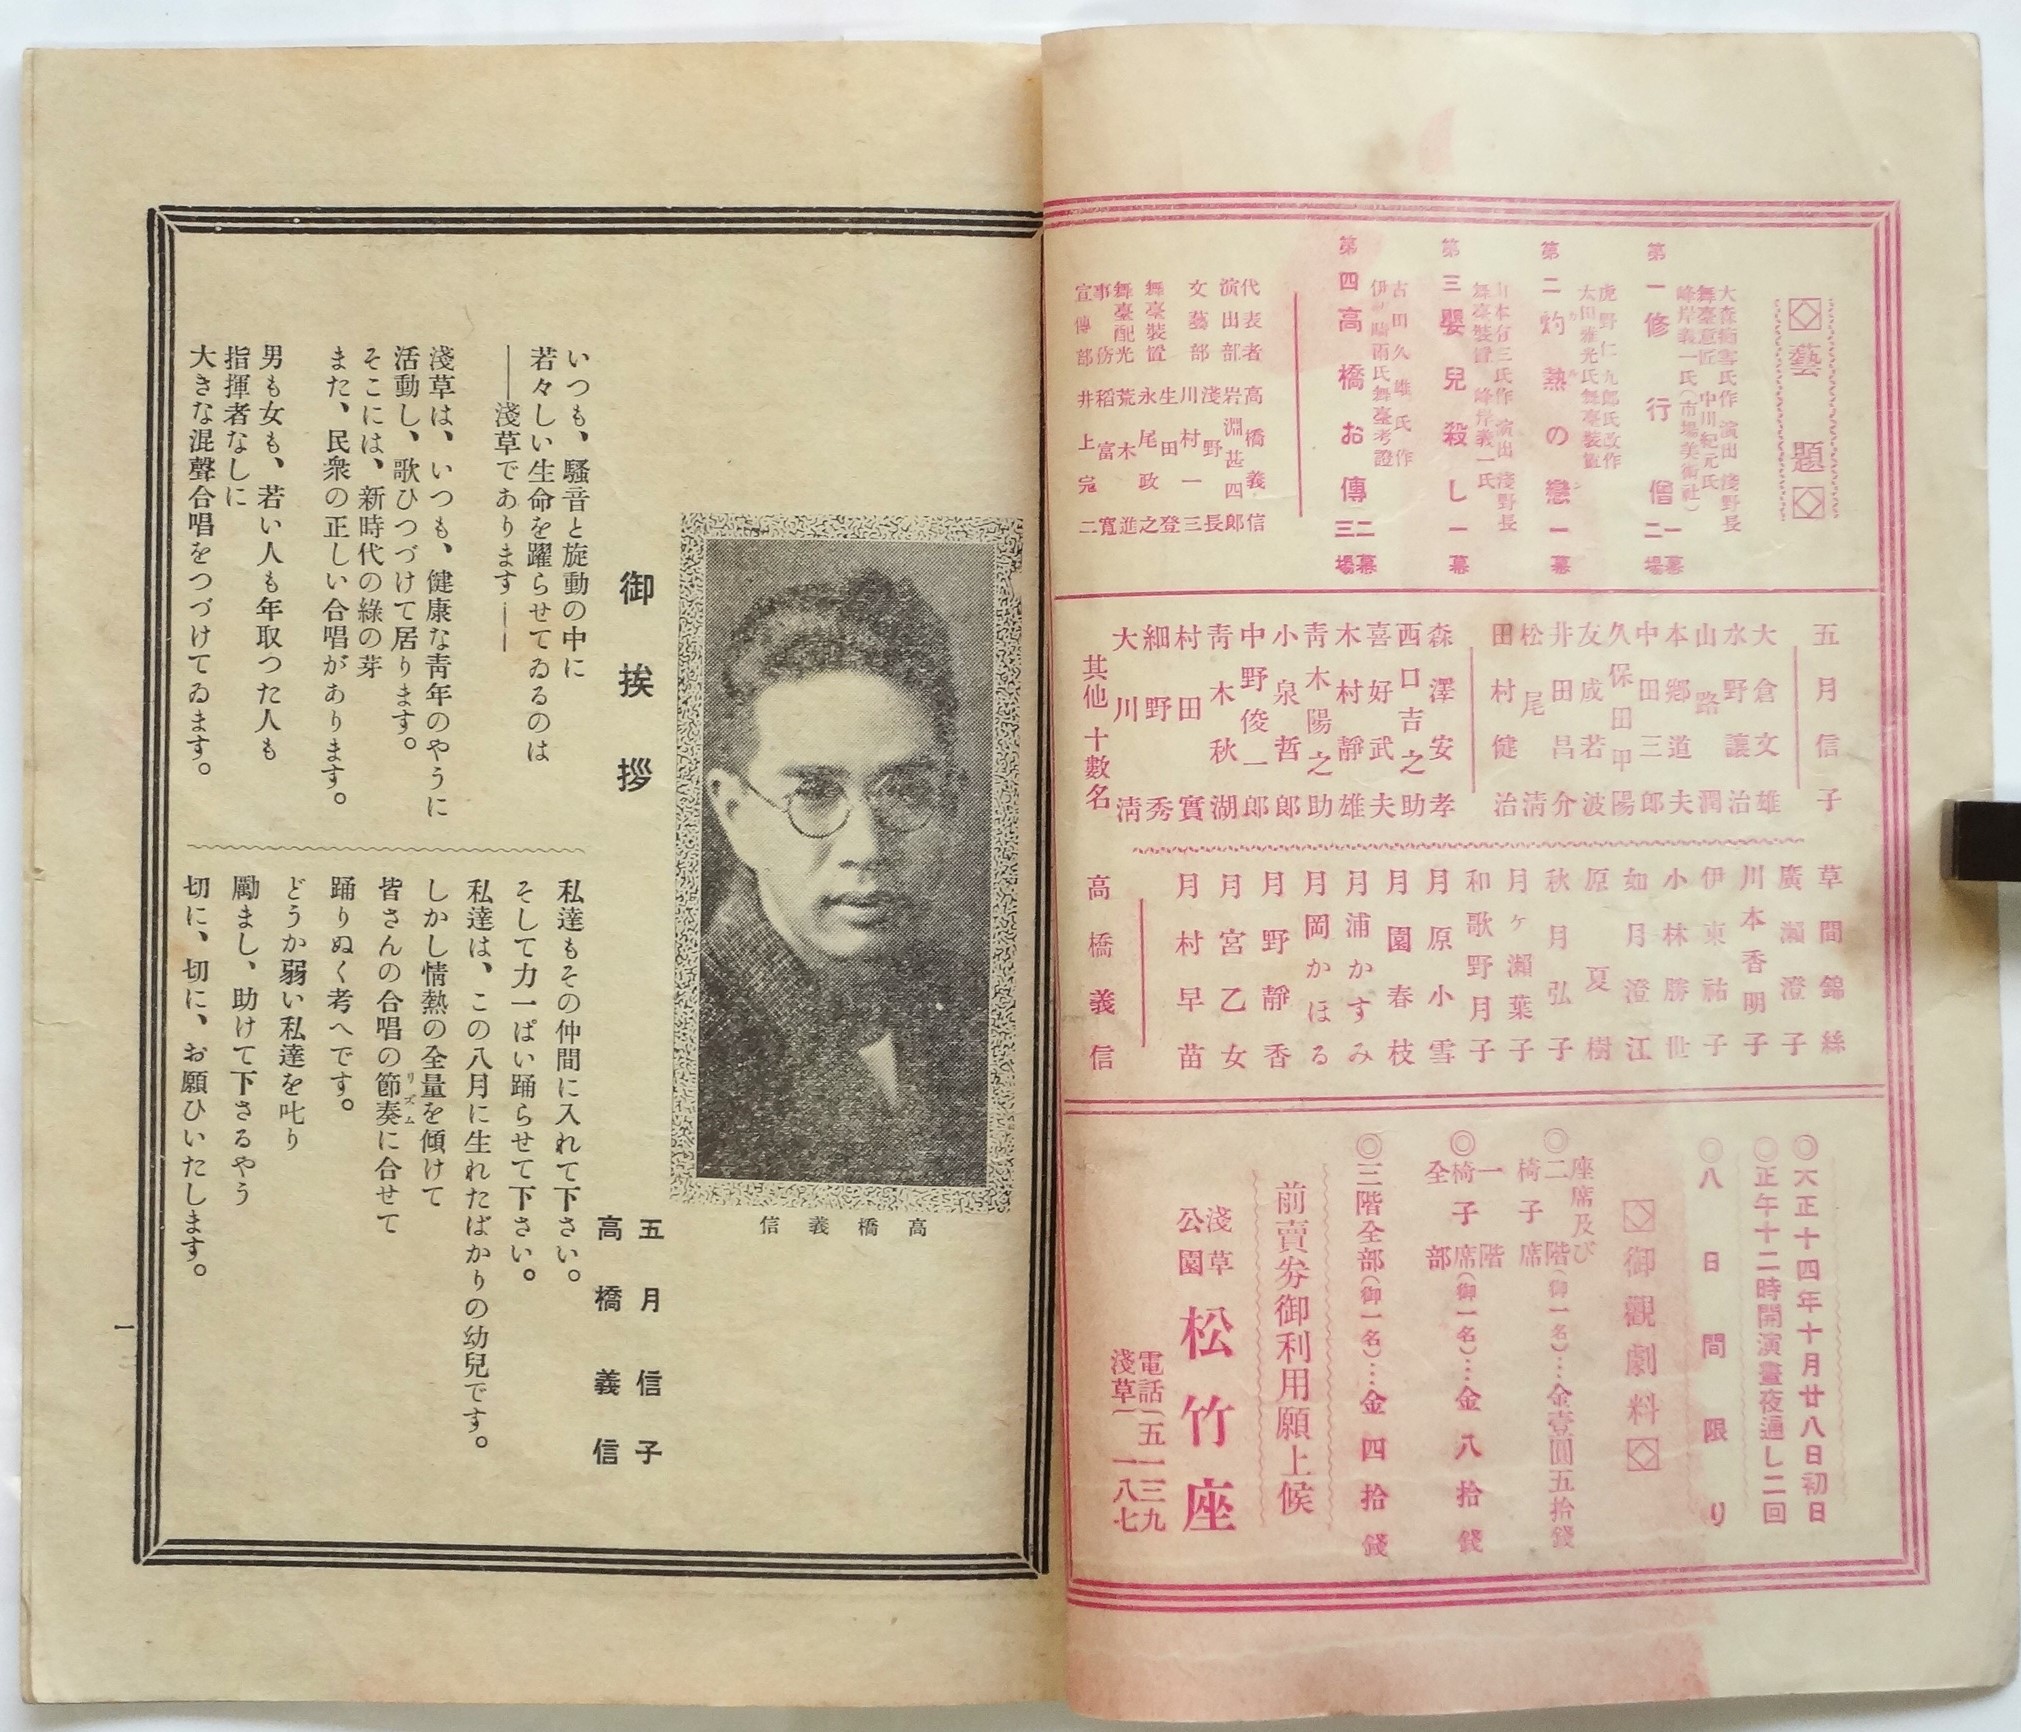 ◇藝題◇
第一 修行僧 一幕二場
大森痴雪氏作 演出 淺野長
舞臺意匠 中川紀元氏
峰岸義一氏(市場美術社)
第二 灼熱の戀 一幕
虎野仁九郎氏改作
太田雅光氏舞臺裝置
第三 嬰兒殺し 一幕
山本有三氏作 演出 淺野長
舞臺裝置 峰岸義一氏
第四 高橋お傳 二幕三場
古田久雄氏作
伊藤晴雨氏舞臺考證
代表者 高橋義信
演出部 岩淵甚四郎
淺野長
文藝部 川村一三
生田登
舞臺裝置 永尾政之
舞臺配光 荒木進
事務 稻富寬
宣傳部 井上寃二
五月信子
大倉文雄
水野讓治
山路潤
本鄕道夫
中田三郎
久保田甲陽
友成若波
井田昌介
松尾淸
田村健治
森澤安孝
西口吉之助
喜好武夫
木村靜雄
靑木陽之助
小泉哲郎
中野俊一郎
靑木秋湖
村田實
細野秀
大川淸
其他十數名
草間錦絲
廣瀨澄子
川本香明子
伊東祐子
小林勝世
如月澄江
原夏樹
秋月弘子
月ヶ瀨葉子
和歌野月子
月原小雪
月園春枝
月浦かすみ
月岡かほる
月野靜香
月宮乙女
月村早苗
高橋義信
◎大正十四年十月廿八日初日
◎正午十二時開演晝夜通し二回
◎八日間限り
◇御觀劇料◇
座席及び
◎二階椅子席(御一名)…金壹圓五拾錢
◎一階椅子席全部(御一名)…金八拾錢
◎三階全部(御一名)…金四拾錢
前賣劵御利用願上候
淺草公園 松竹座
電話淺草(五一三九
一八七
高橋義信
御挨拶
五月信子
高橋義信
いつも、騷音と旋動の中に
若々しい生命を躍らせてゐるのは
――淺草であります――
淺草は、いつも、健康な靑年のやうに
活動し、歌ひつづけて居ります。
そこには、新時代の綠の芽
また、民衆の正しい合唱があります。
男も女も、若い人も年取つた人も
指揮者なしに
大きな混聲合唱をつづけてゐます。
私達もその仲間に入れて下さい。
そして力一ぱい踊らせて下さい。
私達は、この八月に生れたばかりの幼兒です。
しかし情熱の全量を傾けて
皆さんの合唱の節奏リズムに合せて
踊りぬく考へです。
どうか弱い私達を叱り
勵まし、助けて下さるやう
切に、切に、お願ひいたします。
一